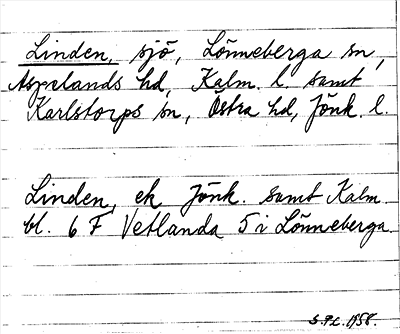 Linden, sjö, Lönneberga sn,
Aspelands hd, Kalm. l. samt
Karlstorps sn, Östra hd, Jönk. l.
Linden, ek Jönk. samt Kalm.
bl. 6 F Vetlanda 5 i Lönneberga.
S.P.L. 1958.